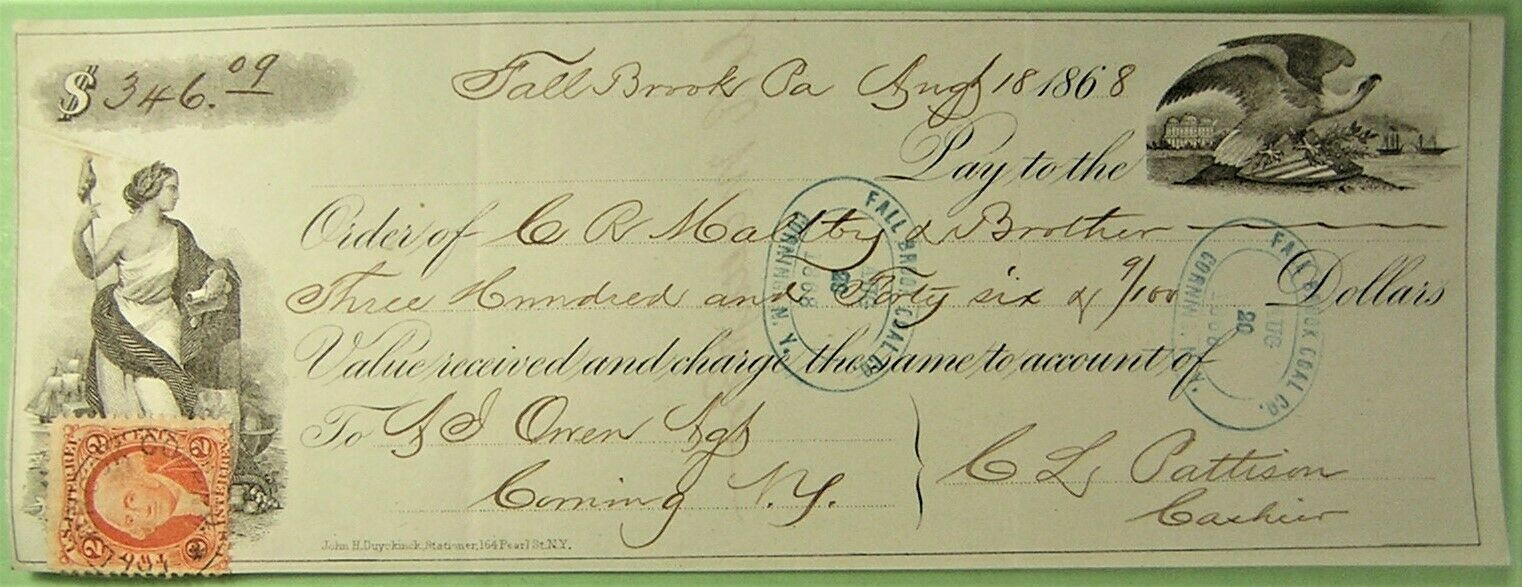 $ 346.09
Fall Brook Pa Augt 18 1868
Pay to the
Order of C R Maltby & Brother
Three Hundred and Forty six & 9/100 Dollars
Value received and charge the same to account of
To A J Owen Agt
Corning N.Y.
C L Pattison
Cashier
John H. Duyckinck, Stationer, 164 Pearl St. N.Y.
FALL BROOK COAL CO.
AUG
20
1868
CORNING N. Y.
FALL BROOK COAL CO.
AUG
20
1868
CORNING N. Y.
U.S. INTER. REV.
2
2
2